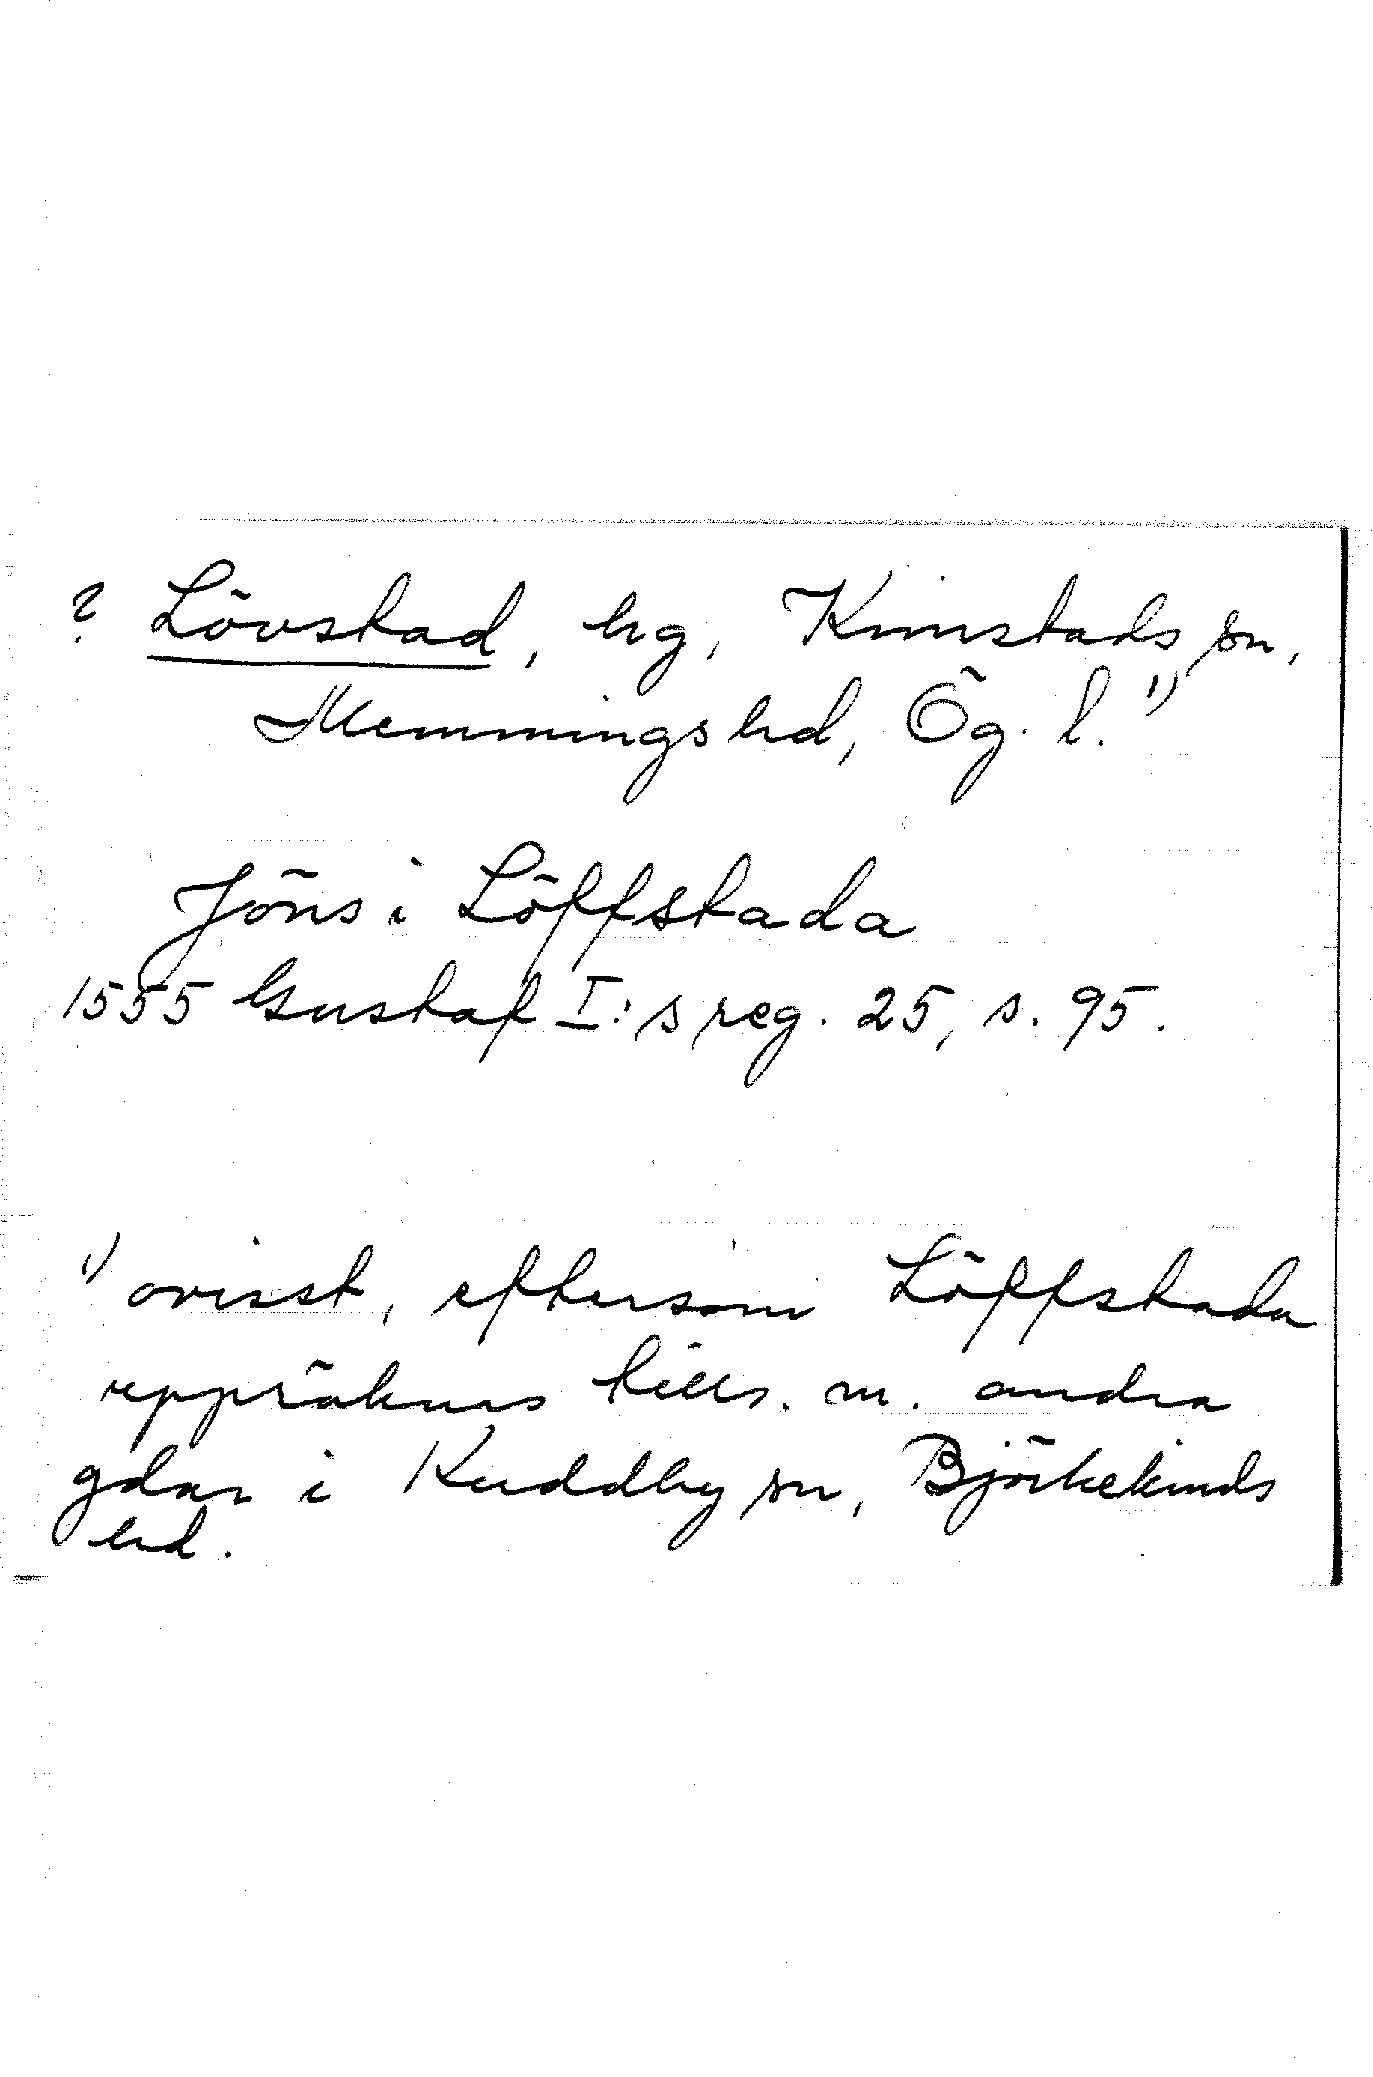 ? Lövstad, hg, Kimstads sn,
Memmings hd, Ög. l. 1)
Jöns i Löffstada
1555 Gustaf I:s reg. 25, s. 95.
1) ovisst, eftersom Löffstada
uppräknas tills. m. andra
gdar i Kuddby sn, Björkekinds
hd.